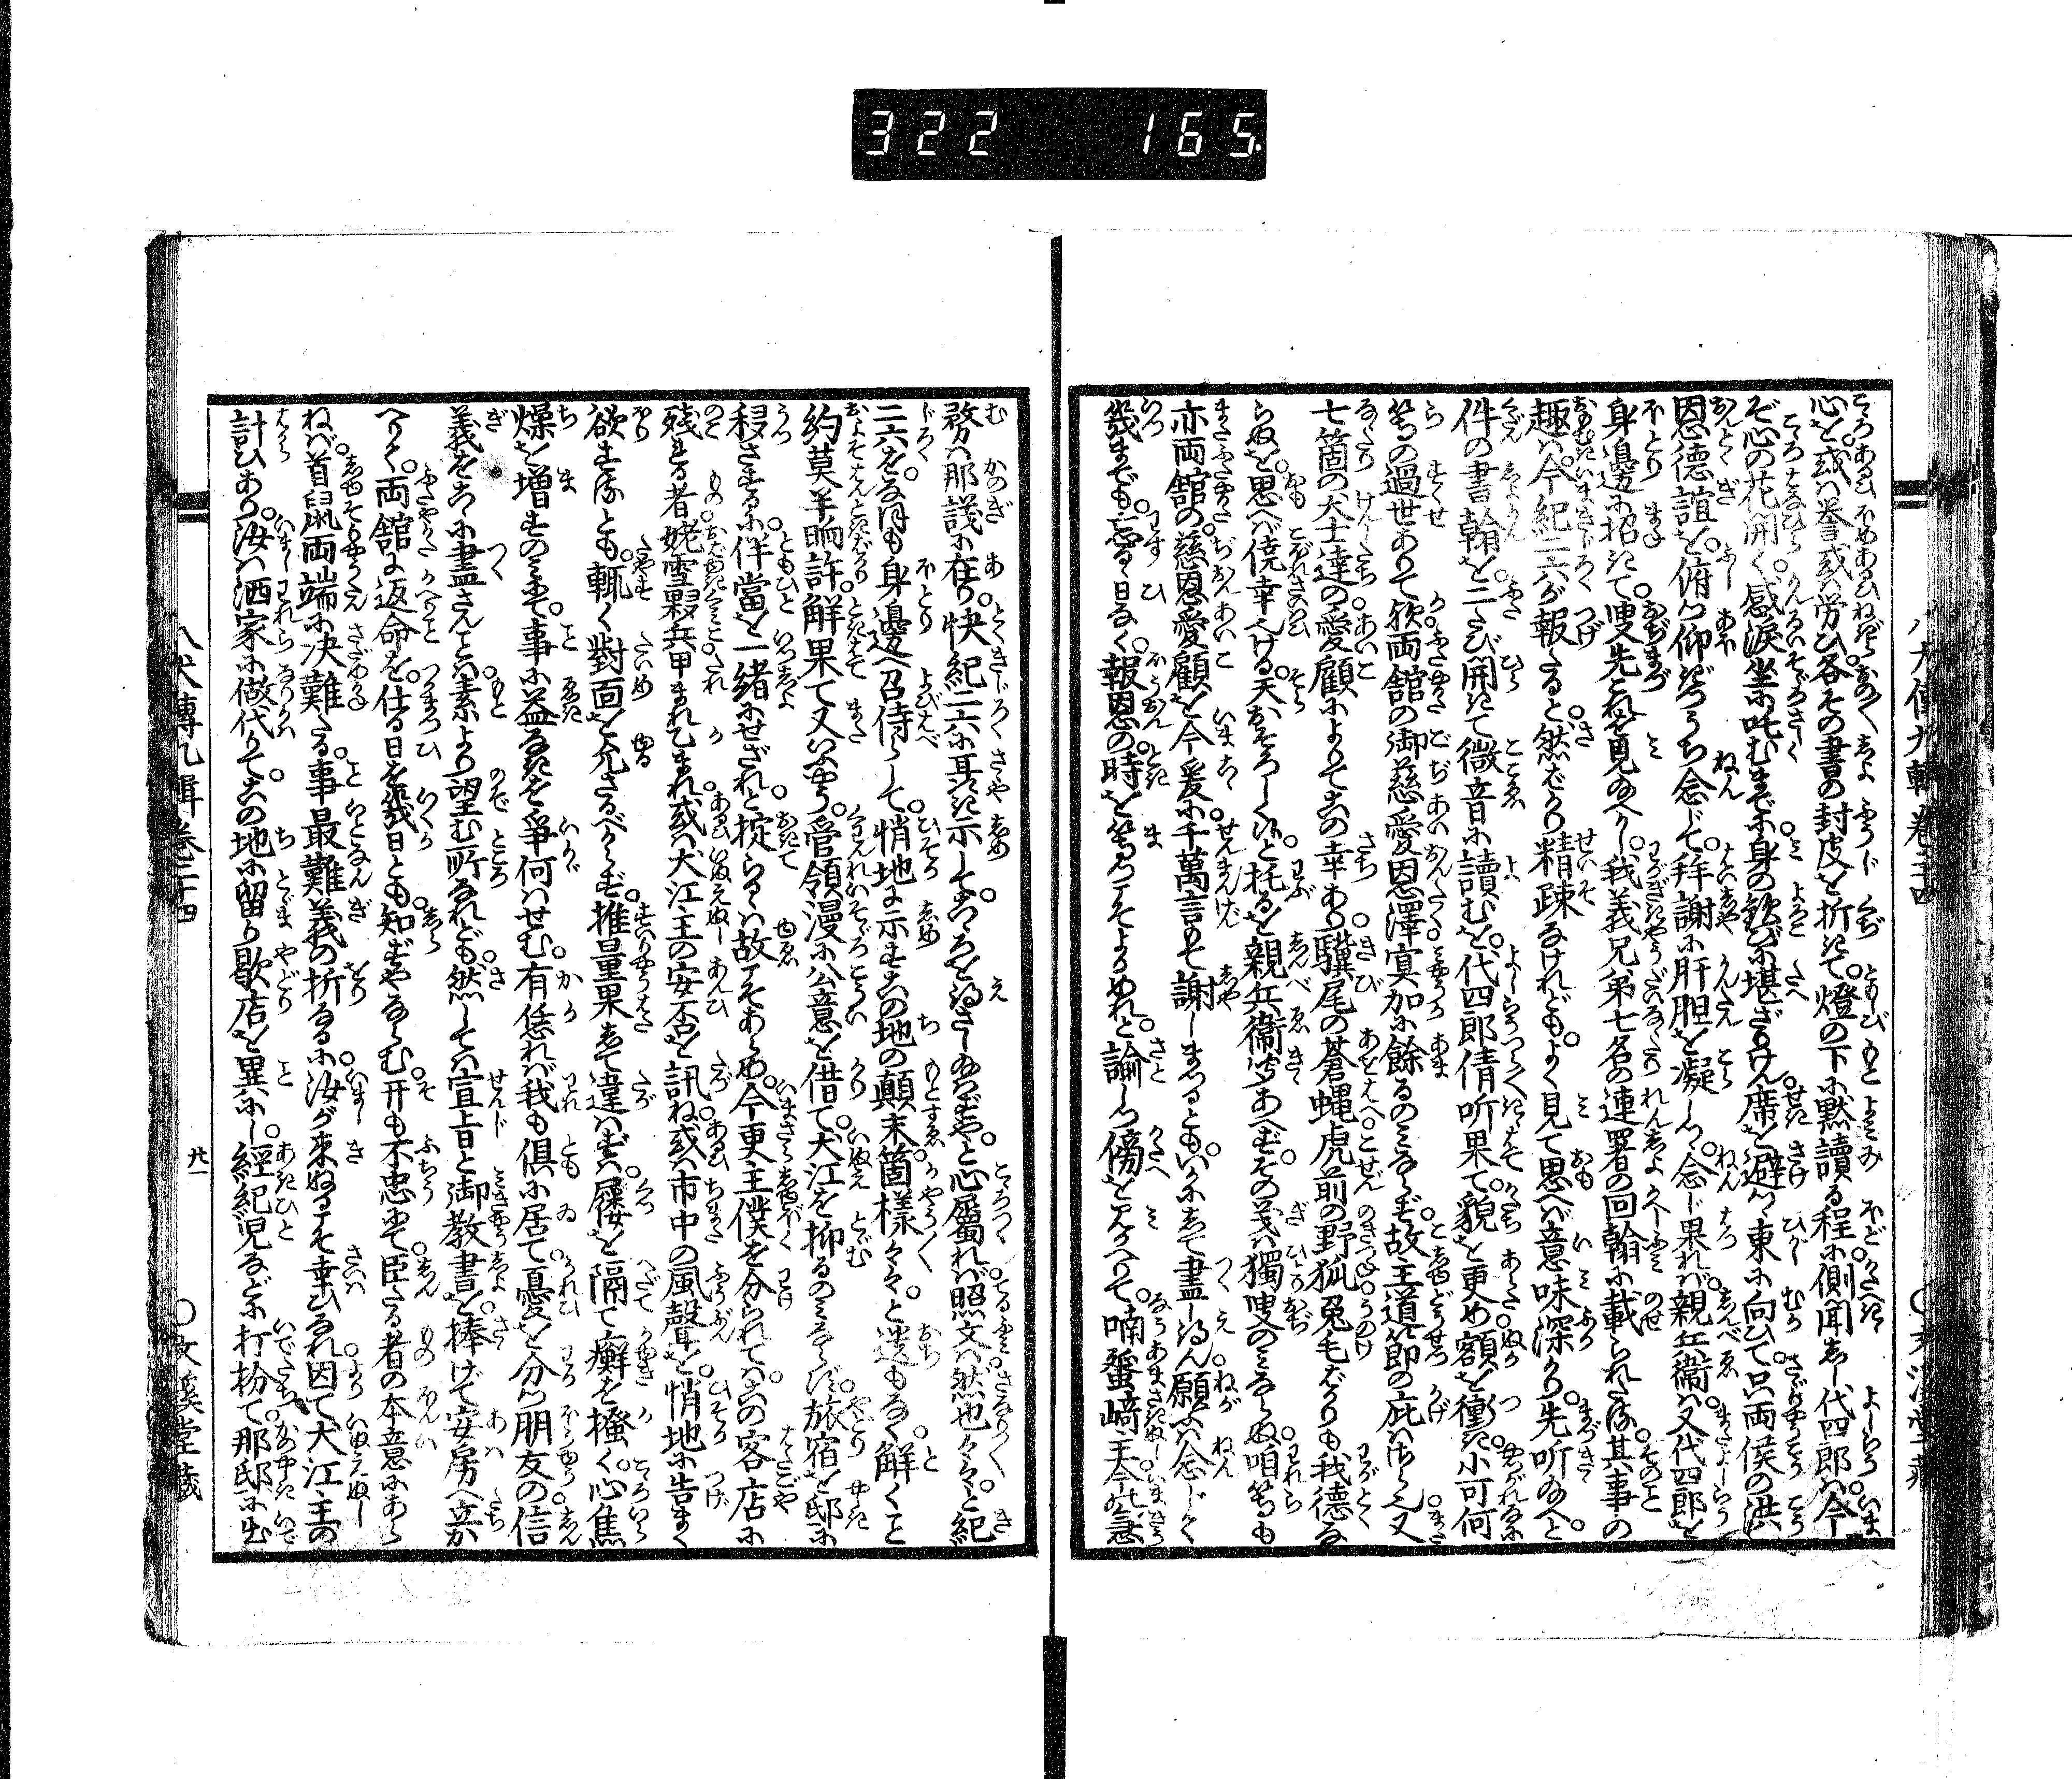 322 165
心を或は誉或は労ひ各その書の封皮を折て燈の下に黙讀る程に側聞せし代四郎は今
ぞ心の花開く感涙坐に吐むまでに身の歓びに堪ざりけん席を避け東に向ひて只両侯の洪
恩徳誼を俯つ仰ぎつうち念じて拝謝に肝胆を凝しつ念じ果れば親兵衛は又代四郎を
身邊に招きて叟先これを見給へかし我義兄弟七名の連署の回翰に載られたる其事の
趣は今紀二六が報たると然ばかり精疎なけれどもよく見て思へば意味深かり先听給へと
件の書翰を二たび開きて微音に讀むを代四郎倩听果て貌を更め額を衝き小可何
等の過世ありて欤両舘の御慈愛恩澤冥加に餘るのみならず故主道節の庇はさら也又
七箇の犬士達の愛顧によりてこの幸あり驥尾の蒼蝿虎前の野狐兎毛ばかりも我徳な
らぬを思へば僥幸にける天おそろしく候と托るを親兵衛听あへずその義は獨叟のみならぬ咱等も
亦両舘の慈恩愛顧を今爰に千萬言もて謝しまつるともいかにして盡し得ん願ふは念じて
幾までも忘るゝ日なく報恩の時を等つこそよからめれと諭しつ傍を見かへりて喃蜑崎主今の急
務は那議に在り快紀二六に其を示してこゝろを得さし給はずやと心屬れば照文は然也々々と紀
二六をなほも身邊へ召侍らして悄地に示すこの地の顛末箇様々々と送もなく解くこと
約莫半晌許解果て又いふやう管領漫に公意を借て犬江を抑るのみならず旅宿を邸に
移さするに伴當を一緒にせざれと掟らるゝは故こそあらめ今更主僕を分られてはこの客店に
残れる者姥雪與兵甲まれ乙まれ或は犬江主の安否を訊ね或は市中の風聲を悄地に告まく
欲するとも輒く對面を允さるべからず推量果して違はずは屨を隔て癬を掻く心焦
燥を増すのみにて事に益なきを争何はせむ有恁れば我も倶に居て憂を分つ朋友の信
義をこゝに盡さんことは素より望む所なれども然しては宣旨と御教書を捧げて安房へ立か
へりて両舘に返命を仕る日を幾日とも知ずやならむ开も不忠にて臣たる者の本意にあら
ねば首鼠両端に决難たる事最難義の折なるに汝が来ぬるこそ幸ひなれ因て犬江主の
計ひあり汝は洒家に做代りてこの地に留り歇店を異にし經紀児などに打扮て那邸に出
八犬傳九輯卷二十四
廿一
○文溪堂藏